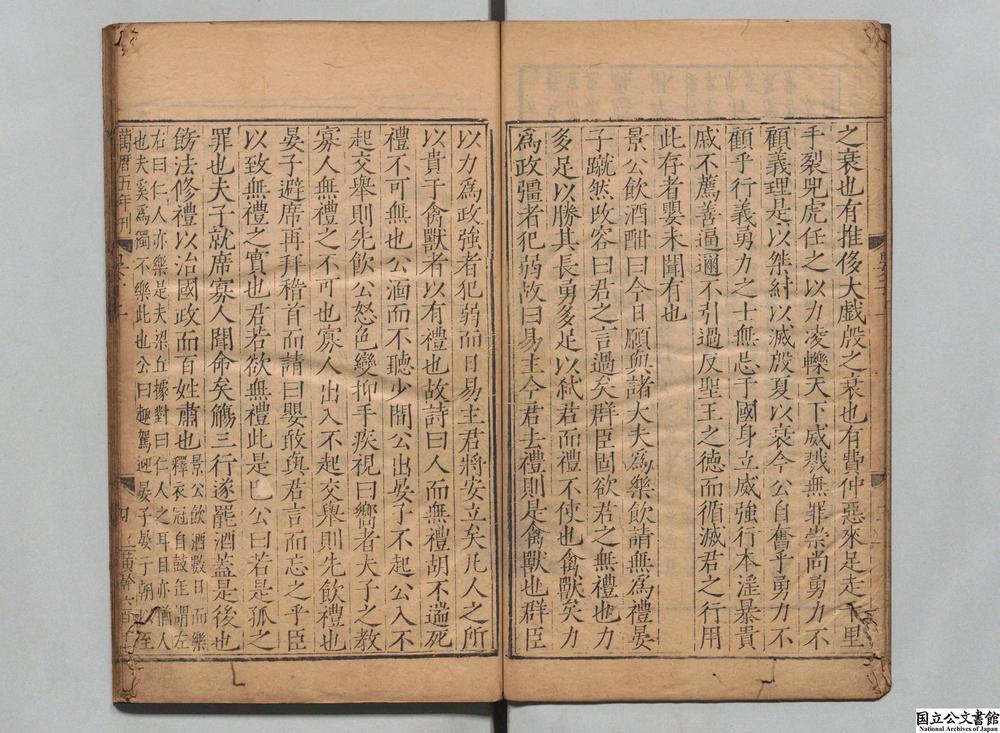 之衰也有推侈大戲殷之衰也有費仲惡來足走千里
手裂兕虎任之以力凌轢天下威戮無罪崇尚勇力不
顧義理是以桀紂以滅殷夏以衰今公自奮乎勇力不
顧乎行義勇力之士無忌于國身立威強行本淫暴貴
戚不薦善逼邇不引過反聖王之德而循滅君之行用
此存者嬰未聞有也
景公飲酒酣曰今日願與諸大夫為樂飲請無為禮晏
子蹴然改容曰君之言過矣群臣固欲君之無禮也力
多足以勝其長勇多足以弒君而禮不使也禽獸矣力
為政彊者犯弱故曰易主今君去禮則是禽獸也群臣
以力為政強者犯弱而日易主君將安立矣凡人之所
以貴于禽獸者以有禮也故詩曰人而無禮胡不遄死
禮不可無也公湎而不聽少間公出晏子不起公入不
起交舉則先飲公怒色變抑手疾視曰嚮者夫子之教
寡人無禮之不可也寡人出入不起交舉則先飲禮也
晏子避席再拜稽首而請曰嬰敢與君言而忘之乎臣
以致無禮之實也君若欲無禮此是已公曰若是孤之
罪也夫子就席寡人聞命矣觴三行遂罷酒蓋是後也
飭法修禮以治國政而百姓肅也景公飲酒數日而樂釋衣冠自鼓缶謂左
右曰仁人亦樂是夫梁丘據對曰仁人之耳目亦猶人
也夫奚為獨不樂此也公曰趣駕迎晏子晏子朝以至
萬曆五年刊
國立公文書館
National Archives of Japan